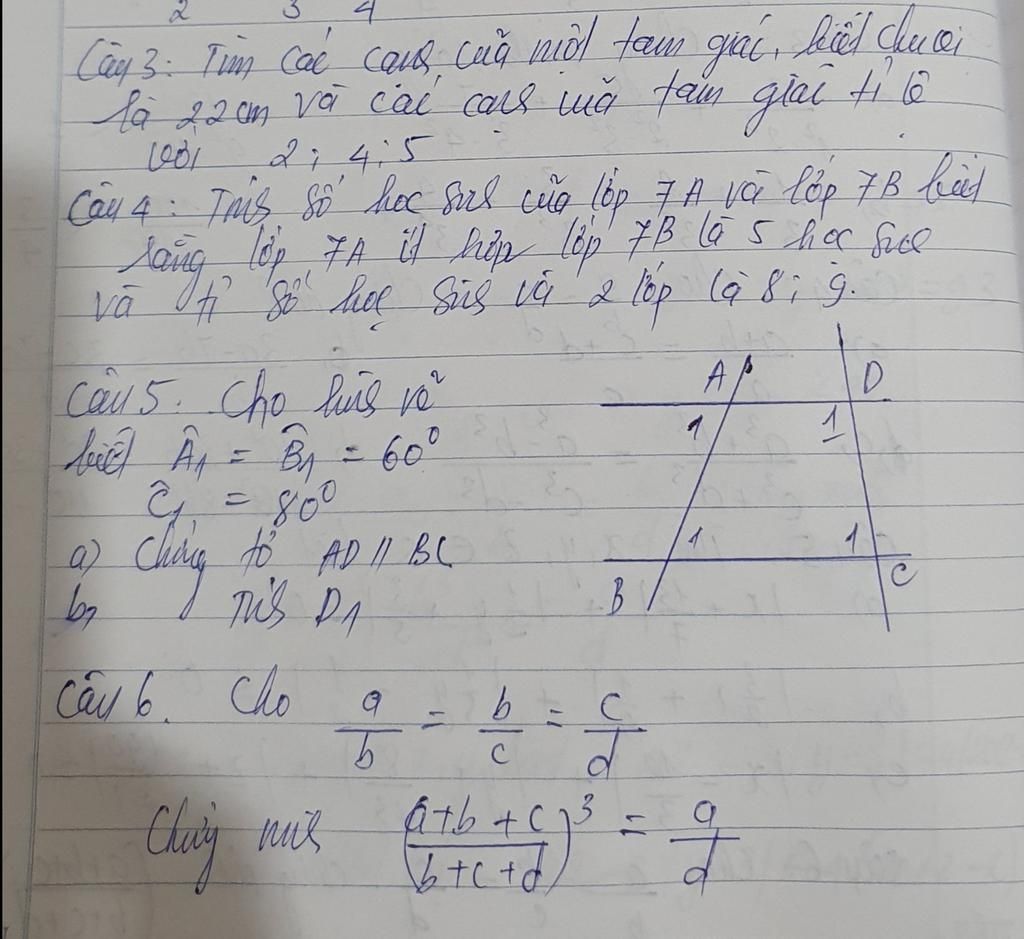 2 3 4
Câu 3: Tìm các cạnh của một tam giác, biết chu vi
là 22 cm và các cạnh của tam giác tỉ lệ
với 2; 4; 5
Câu 4: Tính số học sinh của lớp 7A và lớp 7B biết
rằng lớp 7A ít hơn lớp 7B là 5 học sinh
và tỉ số học sinh và 2 lớp là 8; 9.
Câu 5. Cho hình vẽ
biết Â1 = B̂1 = 60⁰
Ĉ1 = 80⁰
a) Chứng tỏ AD // BC
b, Tính D1
A D
1 1
1 1
B C
Câu 6. Cho a/b = b/c = c/d
Chứng minh ((a+b+c)/(b+c+d))³ = a/d